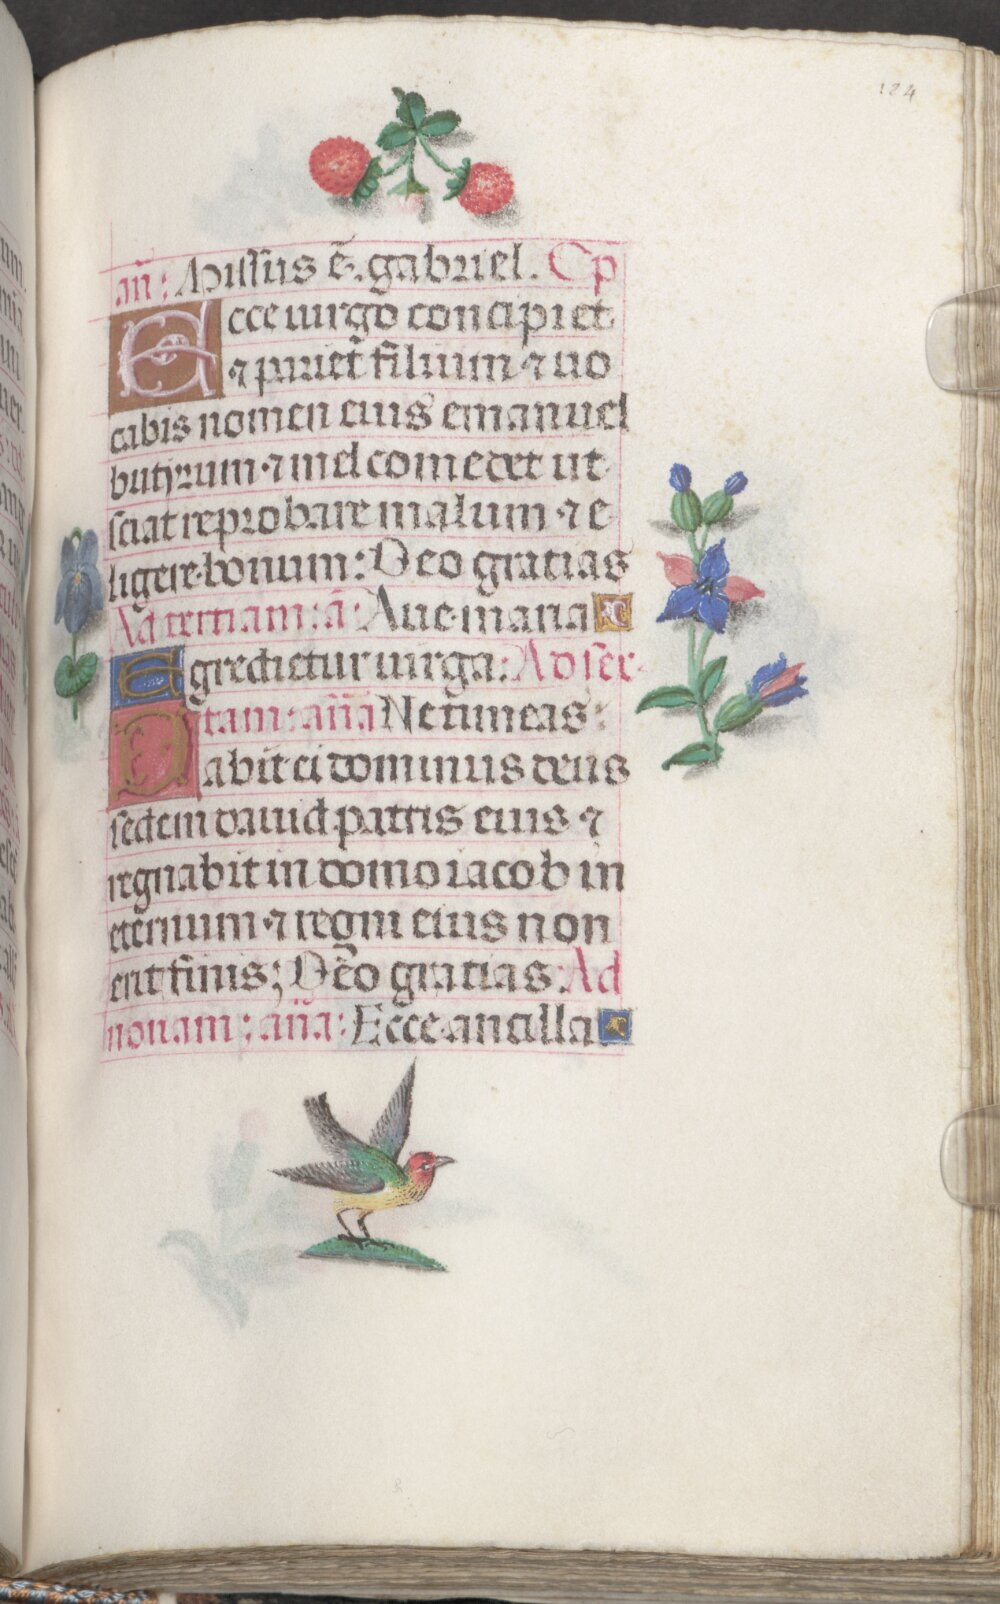 124
an̄: Missus ē. gabriel. Cap̄
Ecce uirgo concipiet
⁊ pariet̄ filium ⁊ uo
cabis nomen eius emanuel
butyrum ⁊ mel comedet ut
sciat reprobare malum ⁊ e
ligere bonum: Deo gratias
Ad tertiam: ā: Aue maria
Egredietur uirga: Ad sex
tam: an̄a Ne timeas:
Dabit ei dominus deus
sedem dauid patris eius ⁊
regnabit in domo iacob in
eternum ⁊ regni eius non
erit finis; Deo gratias. Ad
nonam: an̄a: Ecce ancilla